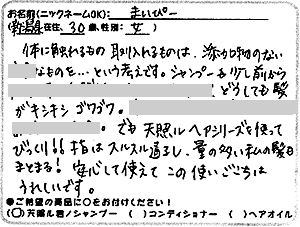 お名前(ニックネームOK): まいぴー
(新潟県 在住、30歳、性別: 女 )
体に触れるもの取り入れるものは、添加物のない
なものを…という考えです。シャンプーも少し前から
どうしても髪
がキシキシ ゴワゴワ。
でも 天照ルヘアシリーズを使って
びっくり!! 指はスルスル通るし、量の多い私の髪も
まとまる! 安心して使えて この使いごこちは
うれしいです。
●ご希望の商品に○をお付けください!
(○)天照ル君/シャンプー ( )コンディショナー ( )ヘアオイル